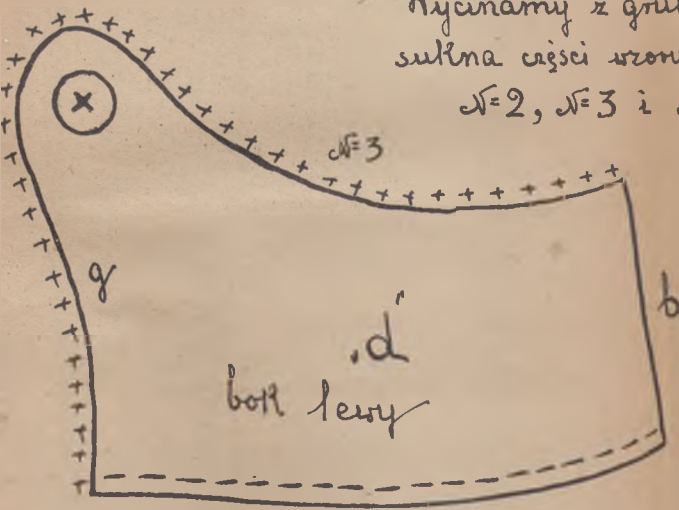 Wycinamy z
sukna części
№2, №3 i
№3
g
b
„d"
bok lewy